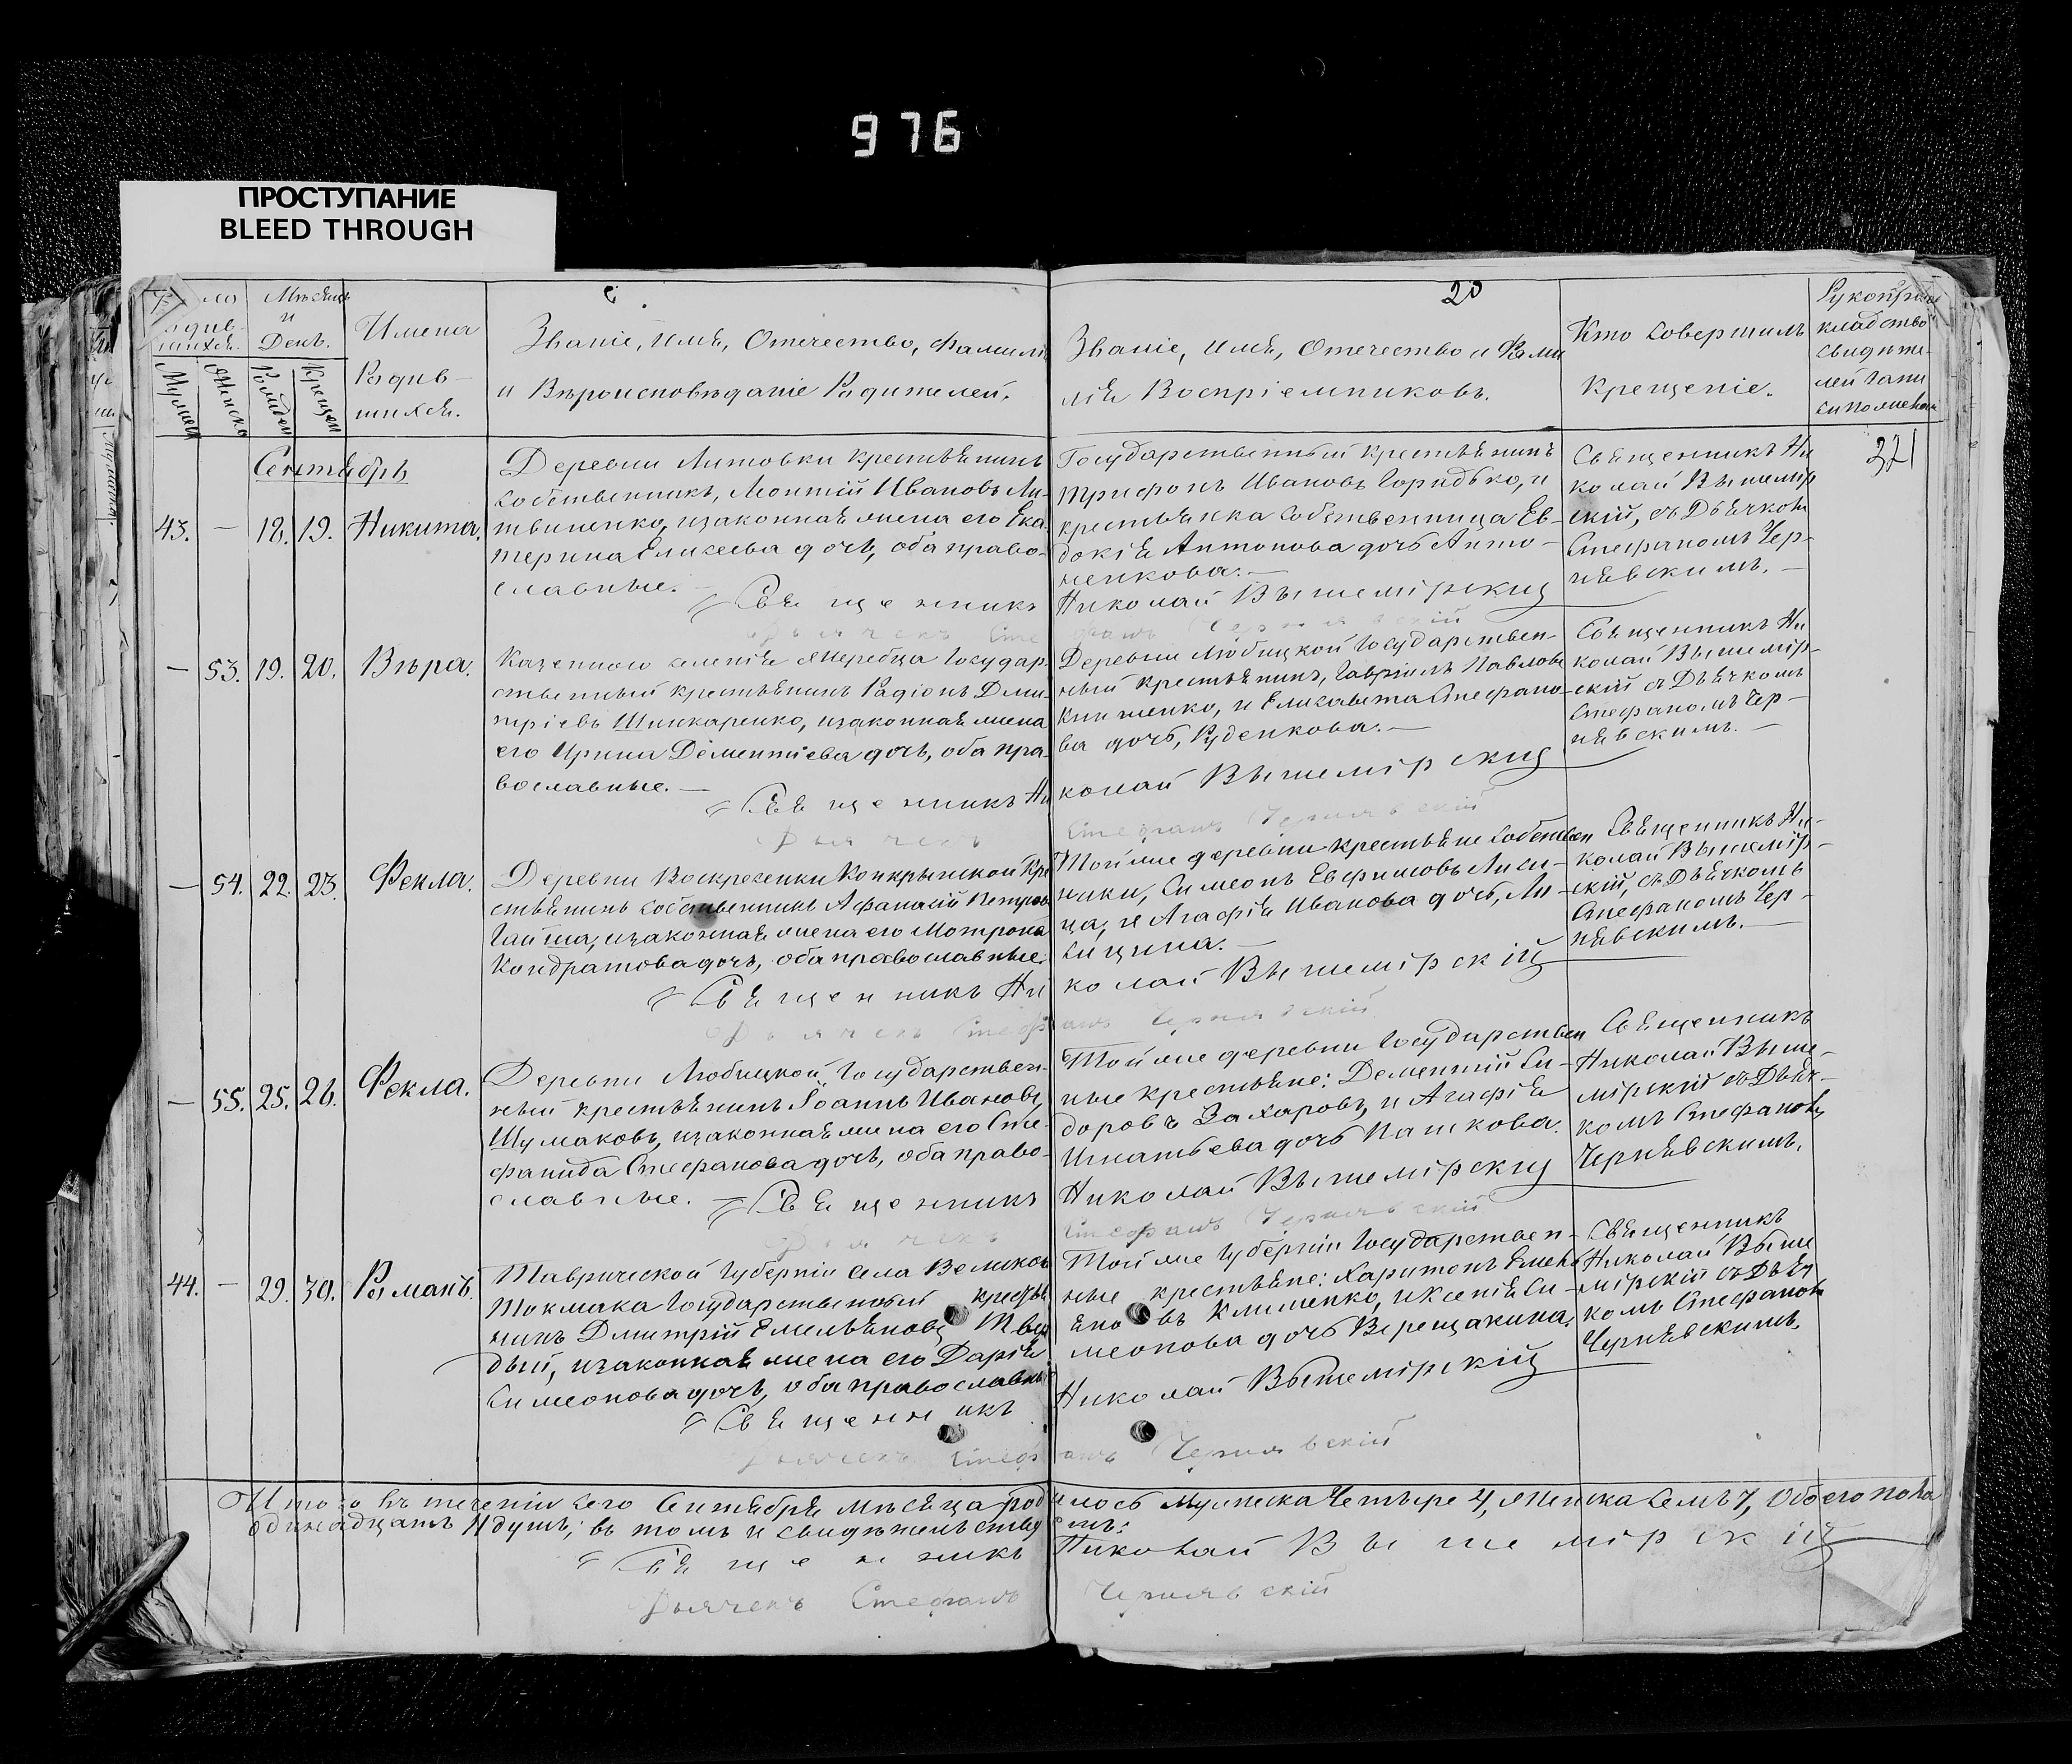 976
ПРОСТУПАНИЕ
BLEED THROUGH
20
321
Мѣсяцъ
и
День.
Имена
Родив-
шихся.
Званіе, имя, Отечество, фамилія
и Вѣроисповѣданіе Родителей.
Званіе, имя, Отечество и Фами
лія Воспріемниковъ.
Кто совершилъ
крещеніе.
Сентябрь
43. — 18. 19. Никита.
Деревни Литовки крестьянинъ
собственникъ, Леонтій Ивановъ Ли-
твиненко, и законная жена его Ека-
терина Елисеева дочь, оба право-
славные. —
Государственный крестьянинъ
Трифонъ Ивановъ и
крестьянка собственница Ев-
докія Антонова дочь Анто-
ненкова. —
Священникъ Ни
колай Вышемір
скій, съ Дьячкомъ
Стефаномъ Чер-
нявскимъ. —
Священникъ Николай Вышемірскій
Дьячекъ Стефанъ Чернявскій
— 53. 19. 20. Вѣра.
Казенного селенія Жеребца Государ
ственный крестьянинъ Радіонъ Дми
тріевъ Шинкаренко, и законная жена
его Ирина Дементіева дочь, оба пра
вославные. —
Деревни Любицкой Государствен-
ный крестьянинъ, Гавріилъ Павловъ
и Елисавета Стефано-
ва дочь, Руденкова. —
Священникъ Ни
колай Вышемір-
скій съ Дьячкомъ
Стефаномъ Чер-
нявскимъ. —
Священникъ Николай Вышемірскій
Дьячекъ Стефанъ Чернявскій
— 54. 22. 23. Фекла.
Деревни Воскресенки Конкрынской Кре
стьянинъ собственникъ Афанасій Петровъ
и законная жена его Мотрона
Кондратова дочь, оба православные.
Той же деревни крестьяне собствен
ники, Симеонъ Евфимовъ Лиси-
ца, и Агафія Иванова дочь, Ли-
сицина. —
Священникъ Ни-
колай Вышемір-
скій, съ Дьячкомъ
Стефаномъ Чер-
нявскимъ. —
Священникъ Николай Вышемірскій
Дьячекъ Стефанъ Чернявскій
— 55. 25. 26. Фекла.
Деревни Любицкой, Государствен-
ный крестьянинъ Іоаннъ Ивановъ
Шумаковъ, и законная жена его Сте-
фанида Стефанова дочь, оба право-
славные. —
Той же деревни Государствен
ные крестьяне: Дементій Си-
доровъ Захаровъ, и Агафія
Игнатьева дочь Пашкова.
Священникъ
Николай Выше-
мірскій съ Дьяч-
комъ Стефаномъ
Чернявскимъ.
Священникъ Николай Вышемірскій
Дьячекъ Стефанъ Чернявскій
44. — 29. 30. Романъ.
Таврической Губерніи села Великого
Токмака Государственный крестья
нинъ Дмитрій Емельяновъ Твер
дый, и законная жена его Дарія
Симеонова дочь, оба православные
Той же Губерніи Государствен-
ные крестьяне: Харитонъ Емель
яновъ Клименко, и Ксенія Си-
меонова дочь Верещакина.
Священникъ
Николай Выше
мірскій съ Дьяч
комъ Стефаномъ
Чернявскимъ.
Священникъ Николай Вышемірскій
Дьячекъ Стефанъ Чернявскій
Итого въ теченіи сего Сентября мѣсяца родилось Мужеска Четыре 4, Женска Семь 7, Обоего пола
одинадцать 11 душъ; въ томъ и свидѣтельствуемъ:
Священникъ Николай Вышемірскій
Дьячекъ Стефанъ Чернявскій